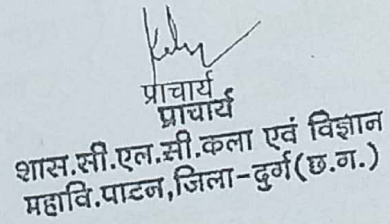 प्राचार्य
प्राचार्य
शास.सी.एल.सी.कला एवं विज्ञान
महावि.पाटन,जिला-दुर्ग(छ.ग.)